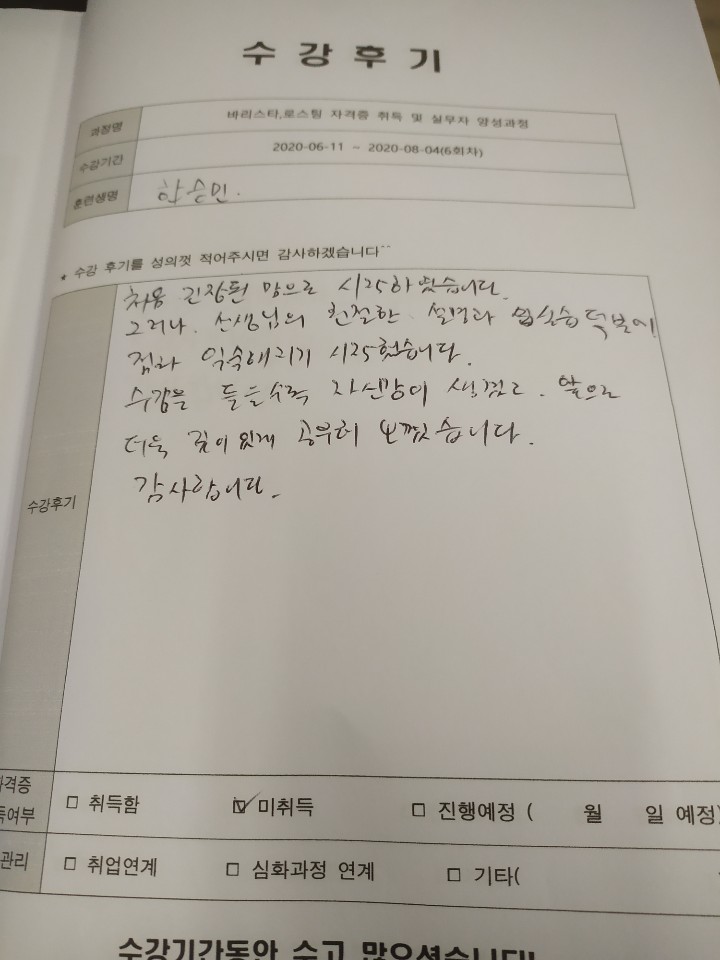 수 강 후 기
과정명 바리스타,로스팅 자격증 취득 및 실무자 양성과정
수강기간 2020-06-11 ~ 2020-08-04(6회차)
훈련생명 하승민.
★ 수강 후기를 성의껏 적어주시면 감사하겠습니다~~
처음 긴장된 맘으로 시작하였습니다.
그러나. 선생님의 친절한 설명과 실습덕분에
점차 익숙해지기 시작했습니다.
수강을 들을수록 자신감이 생겼고. 앞으로
더욱 깊이 있게 공부해 보겠습니다.
감사합니다.
수강후기
자격증
득여부 □ 취득함 ☑ 미취득 □ 진행예정 ( 월 일 예정)
관리 □ 취업연계 □ 심화과정 연계 □ 기타(
수강기간동안 수고 많으셨습니다!